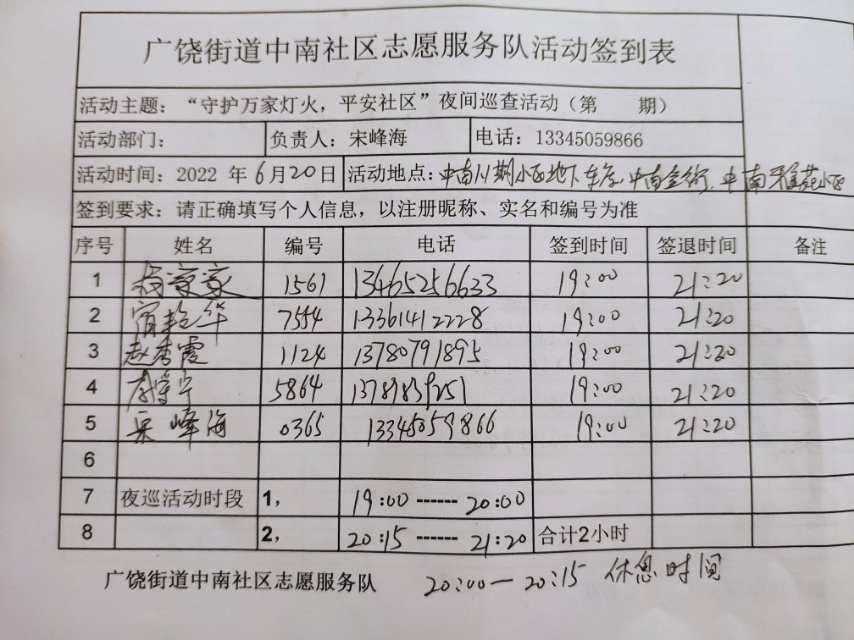 广饶街道中南社区志愿服务队活动签到表
活动主题：“守护万家灯火，平安社区”夜间巡查活动（第 期）
活动部门： 负责人：宋峰海 电话：13345059866
活动时间：2022 年 6月20日 活动地点：中南小区地下车库、中南金街、中南雅苑小区
签到要求：请正确填写个人信息，以注册昵称、实名和编号为准
序号 姓名 编号 电话 签到时间 签退时间 备注
1 1561 13465256633 19:00 21:20
2 7554 13361412228 19:00 21:20
3 赵秀霞 1124 13780791895 19:00 21:20
4 5864 19:00 21:20
5 宋峰海 0365 13345059866 19:00 21:20
6
7 夜巡活动时段 1， 19:00 ------ 20:00
8 2， 20:15 ------ 21:20 合计2小时
广饶街道中南社区志愿服务队 20:00—20:15 休息时间